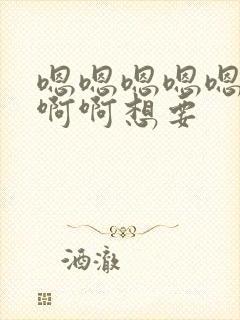 嗯嗯嗯嗯嗯
啊啊想要
酒澈